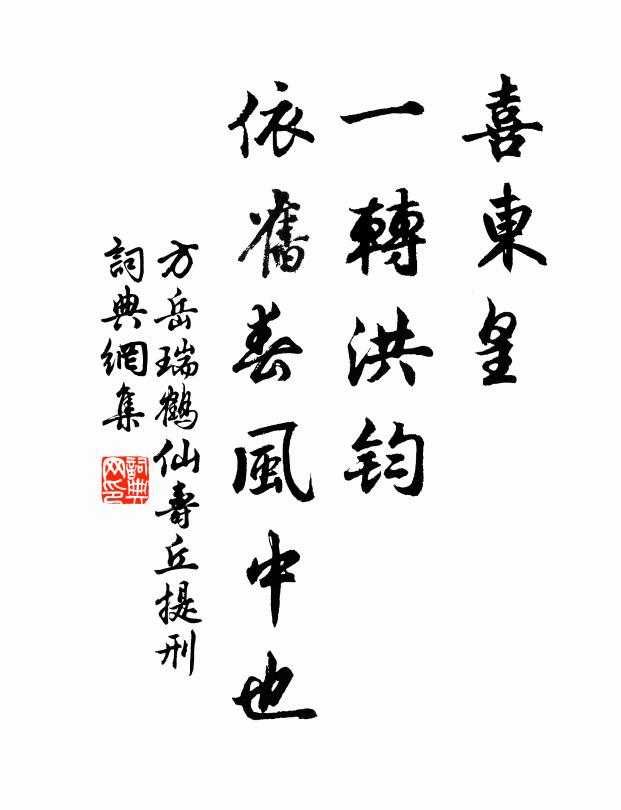 喜東皇
一轉洪鈞
依舊春風中也
方岳瑞鶴仙壽丘提刑
詞典網集
詞典
网印